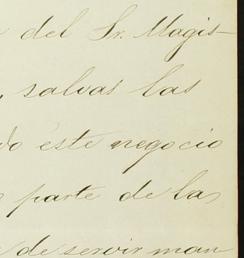 del Sr. Magis-
salvas las
do este negocio
parte de la
de servir man